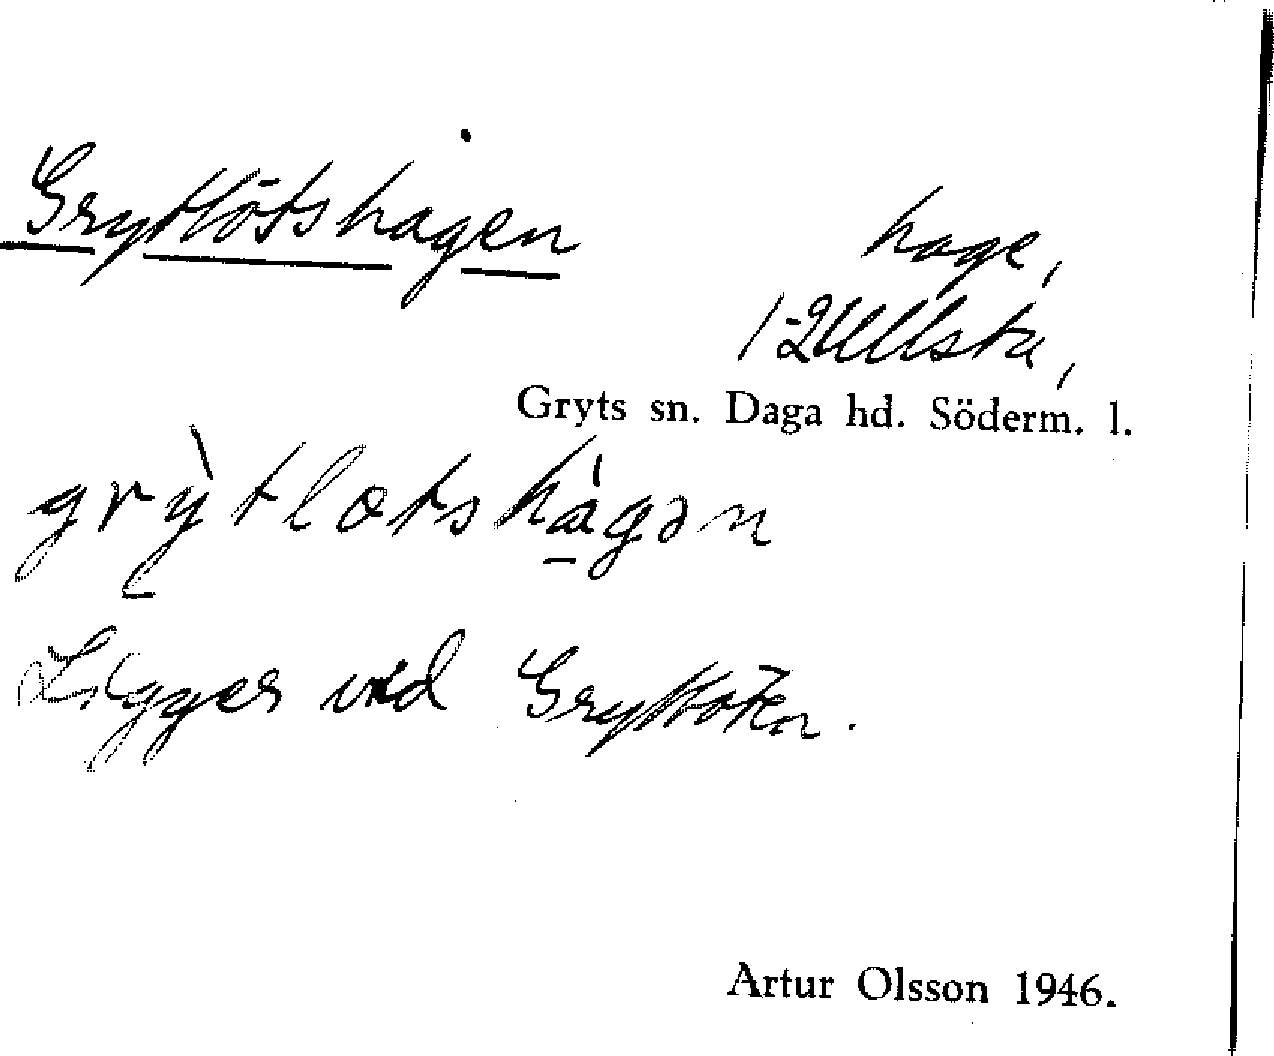 Grytlötshagen
hage,
1-2 Ullsta,
Gryts sn. Daga hd. Söderm. l.
grỳtlœtshágən
Ligger vid Gryttöten.
Artur Olsson 1946.